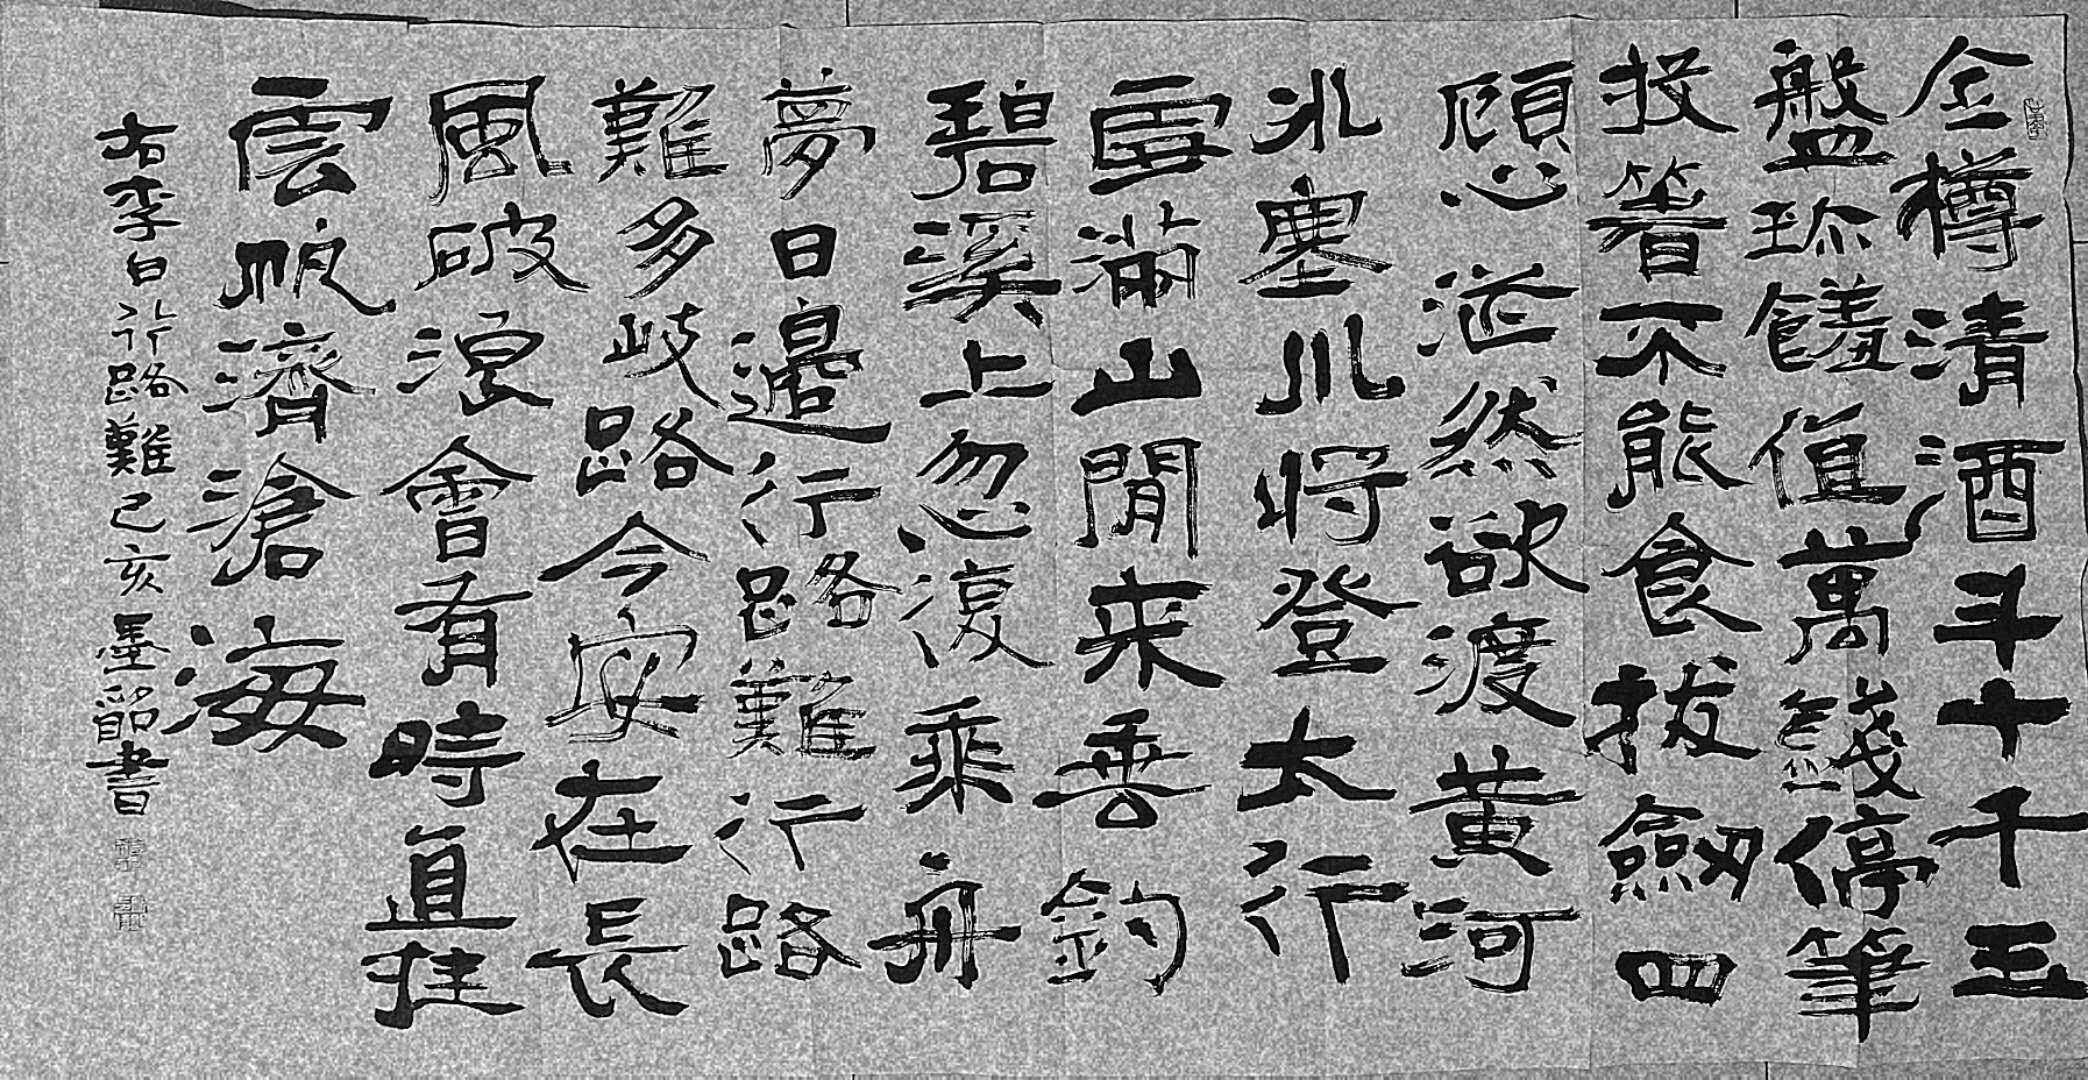 金樽清酒斗十千玉
盤珎饈值萬錢停筆
投箸不能食拔劒四
顧心茫然欲渡黃河
冰塞川將登太行
雪滿山閒来垂釣
碧溪上忽復乘舟
夢日邊行路難行路
難多岐路今安在長
風破浪會有時直挂
雲帆濟滄海
右李白行路難己亥墨韶書